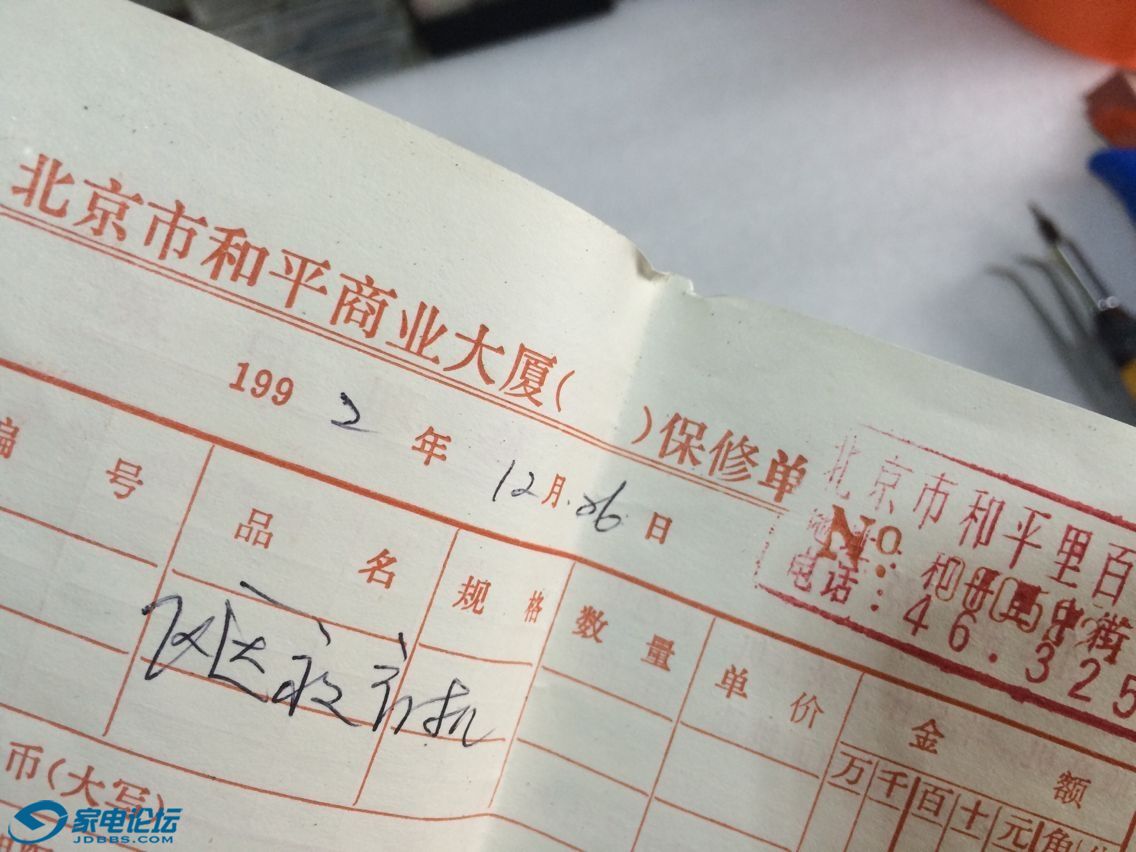 北京市和平商业大厦(  )保修单
1992年12月26日
北京市和平里百
No
电话:46.325
编号 品名 规格 数量 单价 金额
万千百十元角
币(大写)
家电论坛
JDBBS.COM